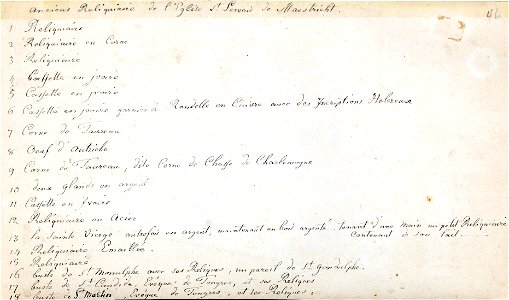 Anciens Reliquiaires de l'Eglise St Servais de Maestricht. 46
1 Reliquiaire
2 Reliquiaire en Corne
3 Reliquiaire
4 Cassette en ivoire
5 Cassette en ivoire
6 Cassette en ivoire garnie à Rondelle en Cuivre avec des Inscriptions Hebreux
7 Corne de Taureau
8 Oeuf d'Autriche
9 Corne de Taureau, dite Corne de Chasse de Charlemagne
10 deux glands en argent
11 Cassette en Ivoire
12 Reliquiaire en Acier
13 la Sainte Vierge autrefois en argent, maintenant en bois argenté tenant d'une main un petit Reliquiaire
contenant de son lait
14 Reliquiaire Emaillée
15 Reliquiaire
16 buste de St Monulphe avec ses Reliques, un pareil de St gondulphe.
17 buste de St Candide, Evêque de Tongres, et ses Reliques
18 buste de St Martin, Evêque de Tongres, et ses Reliques.